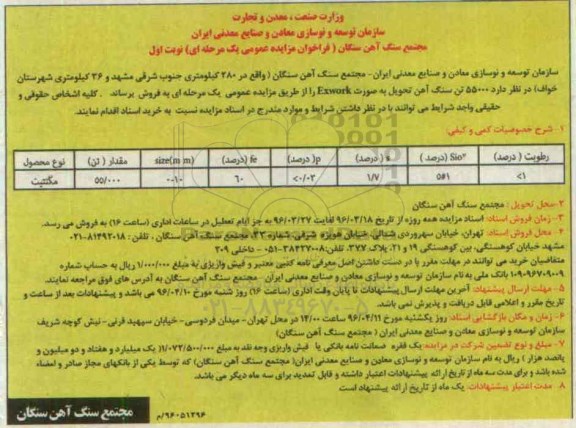 وزارت صنعت ، معدن و تجارت
سازمان توسعه و نوسازی معادن و صنایع معدنی ایران
مجتمع سنگ آهن سنگان ( فراخوان مزایده عمومی یک مرحله ای) نوبت اول
سازمان توسعه و نوسازی معادن و صنایع معدنی ایران - مجتمع سنگ آهن سنگان ( واقع در ۲۸۰ کیلومتری جنوب شرقی مشهد و ۳۶ کیلومتری شهرستان
خواف) در نظر دارد ۵۵۰۰۰ تن سنگ آهن تحویل به صورت Exwork را از طریق مزایده عمومی یک مرحله ای به فروش برساند . کلیه اشخاص حقوقی و
حقیقی واجد شرایط می توانند با در نظر داشتن شرایط و موارد مندرج در اسناد مزایده نسبت به خرید اسناد اقدام نمایند.
۱- شرح خصوصیات کمی و کیفی:
نوع محصول مقدار ( تن) size(mm) fe (درصد) p( درصد) s ( درصد) Sio² (درصد ) رطوبت ( درصد)
مگنتیت ۵۵/۰۰۰ ۰-۱۰ ۶۰ <۰/۰۳ ۱/۷ ۵±۱ <۱
۲-محل تحویل : مجتمع سنگ آهن سنگان
۳- زمان فروش اسناد: اسناد مزایده همه روزه از تاریخ ۹۶/۰۳/۱۸ لغایت ۹۶/۰۳/۲۷ به جز ایام تعطیل در ساعات اداری (ساعت ۱۶) به فروش می رسد.
۴- محل فروش اسناد: تهران، خیابان سهروردی شمالی، خیابان هویزه شرقی، شماره ۱۳۳، مجتمع سنگ آهن سنگان ، تلفن: ۸۱۴۹۲۰۱۸-۰۲۱
مشهد خیابان کوهسنگی، بین کوهسنگی ۱۹ و ۲۱، پلاک ۳۷۷، تلفن: ۳۸۴۲۷۰۰۸-۰۵۱ - داخلی ۲۰۹
متقاضیان خرید می توانند در مهلت مقرر با در دست داشتن اصل معرفی نامه کتبی معتبر و فیش واریزی به مبلغ ۱/۰۰۰/۰۰۰ ریال به حساب شماره
۱۰۹۰۹۶۷۰۹۰۰۹ بانک ملی به نام سازمان توسعه و نوسازی معادن و صنایع معدنی ایران- مجتمع سنگ آهن سنگان به آدرس های فوق مراجعه نمایند.
۵- مهلت ارسال پیشنهاد: آخرین مهلت ارسال پیشنهادات تا پایان وقت اداری (ساعت ۱۶) روز شنبه مورخ ۹۶/۰۴/۱۰ می باشد و پیشنهادات بعد از ساعت و
تاریخ مقرر و اعلامی قابل دریافت و پذیرش نمی باشد.
۶- زمان و مکان بازگشایی اسناد: روز یکشنبه مورخ ۹۶/۰۴/۱۱ ساعت ۱۴/۰۰ در محل تهران- میدان فردوسی- خیابان سپهبد قرنی- نبش کوچه شریف
سازمان توسعه و نوسازی معادن و صنایع معدنی ایران ( مجتمع سنگ آهن سنگان)
۷- مبلغ و نوع تضمین شرکت در مزایده: یک فقره ضمانت نامه بانکی یا فیش واریزی وجه نقد به مبلغ ۱/۰۷۲/۵۰۰/۰۰۰( یک میلیارد و هفتاد و دو میلیون و
پانصد هزار ) ریال به نام سازمان توسعه و نوسازی معادن و صنایع معدنی ایران( مجتمع سنگ آهن سنگان) که توسط یکی از بانکهای مجاز صادر و امضاء
شده باشد و برای مدت سه ماه از تاریخ ارائه پیشنهادات اعتبار داشته و قابل تمدید برای سه ماه دیگر می باشد.
۸. مدت اعتبار پیشنهادات: یک ماه از تاریخ ارائه پیشنهاد است
مجتمع سنگ آهن سنگان
۹۶۰۵۱۳۹۶/م